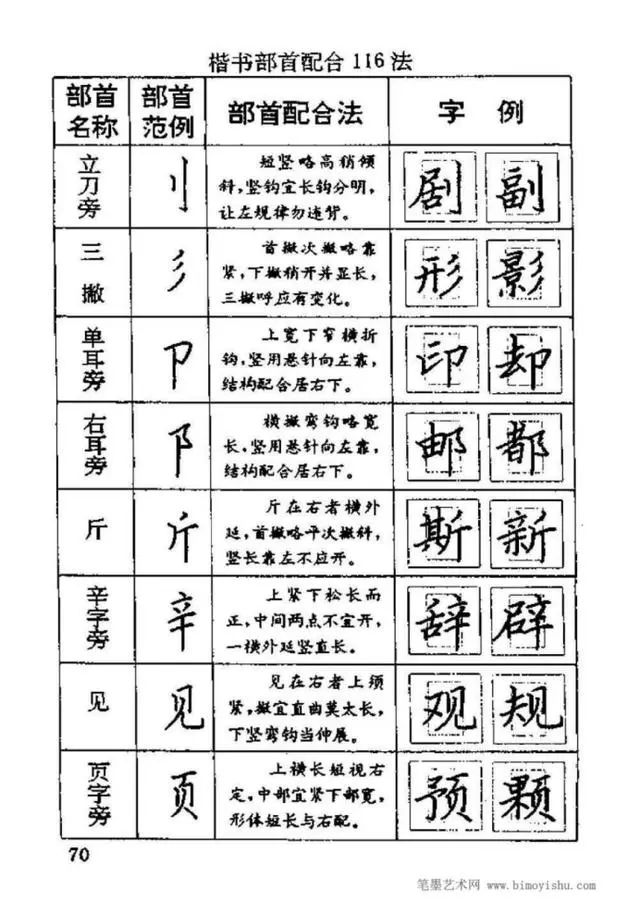 楷书部首配合116法
部首名称 部首范例 部首配合法 字 例
立刀旁 刂 短竖略高稍倾
斜，竖钩宜长钩分明，
让左规律勿违背。 剧 副
三撇 彡 首撇次撇略靠
紧，下撇稍开并显长，
三撇呼应有变化。 形 影
单耳旁 卩 上宽下窄横折
钩，竖用悬针向左靠，
结构配合居右下。 印 却
右耳旁 阝 横撇弯钩略宽
长，竖用悬针向左靠，
结构配合居右下。 邮 都
斤 斤 斤在右者横外
延，首撇略平次撇斜，
竖长靠左不应开。 斯 新
辛字旁 辛 上紧下松长而
正，中间两点不宜开，
一横外延竖直长。 辞 辟
见 见 见在右者上须
紧，撇宜直曲莫太长，
下竖弯钩当伸展。 观 规
页字旁 页 上横长短视右
定，中部宜紧下部宽，
形体短长与右配。 预 颗
70
笔墨艺术网 www.bimoyishu.com